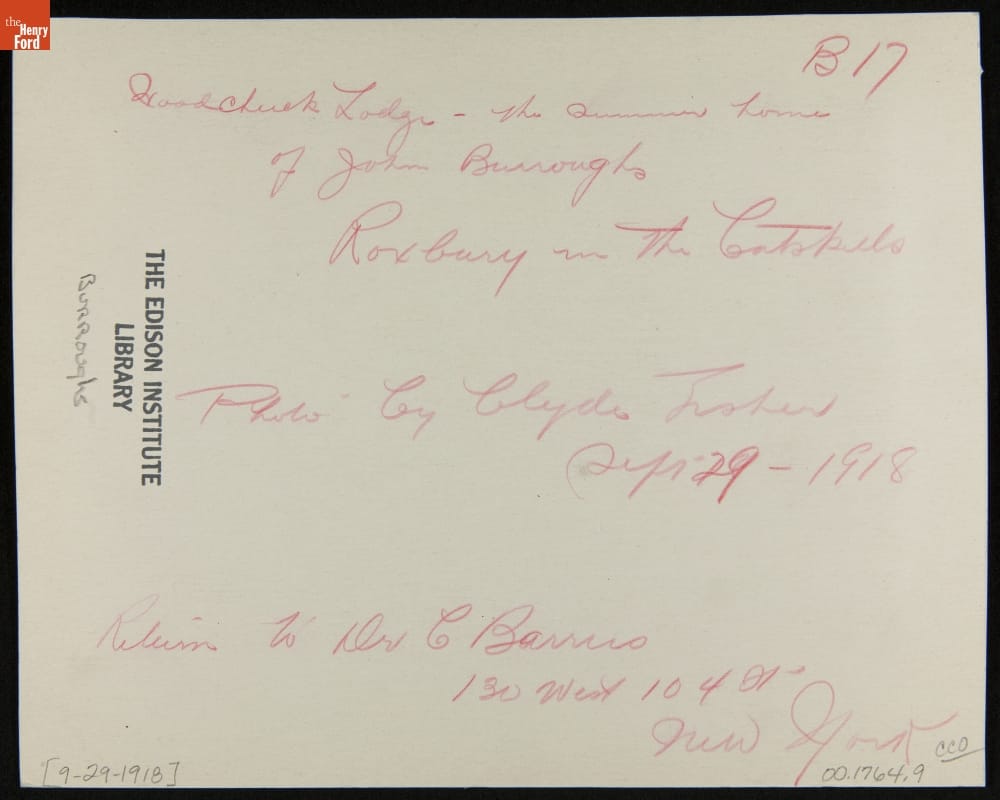 the
Henry
Ford
B 17
Woodchuck Lodge - the summer home
of John Burroughs
Roxbury in the Catskills
THE EDISON INSTITUTE
LIBRARY
Burroughs
Photo by Clyde Fisher
Sept 29 - 1918
Return to Dr C Barrus
130 West 104 St
New York
cco
[9-29-1918]
00.1764.9